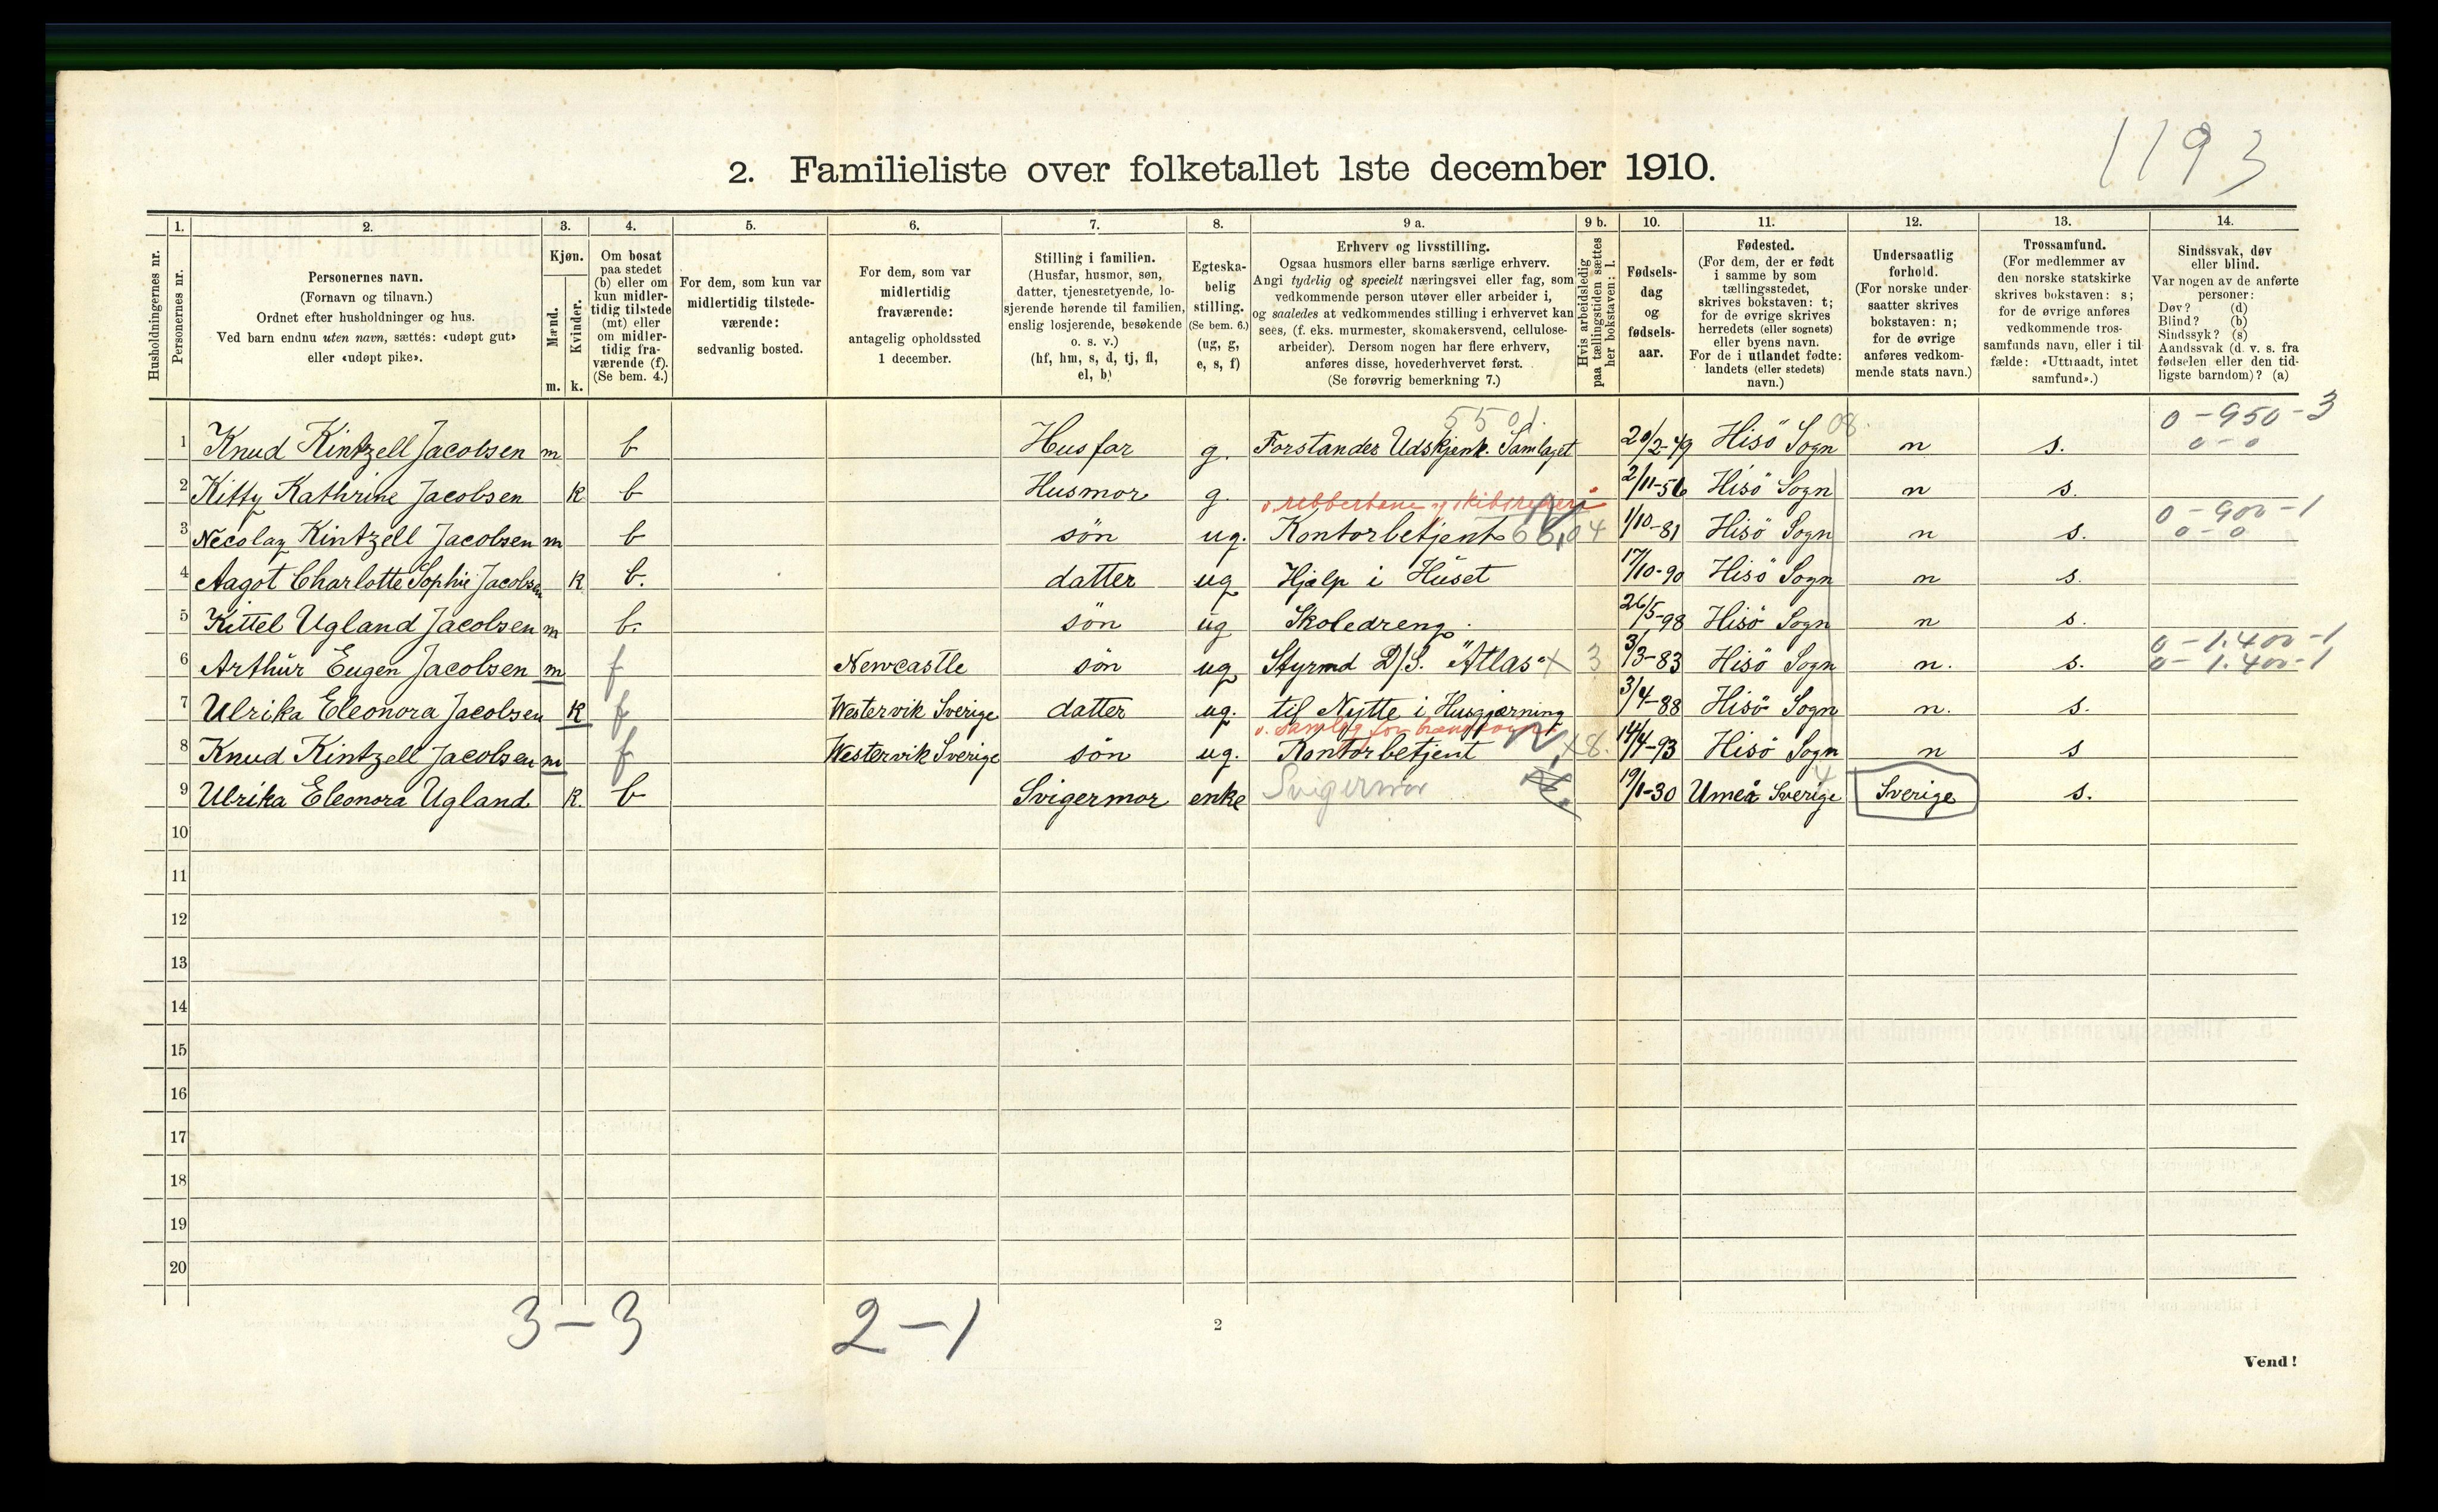 1193
2. Familieliste over folketallet 1ste december 1910.
Husholdningernes nr.
1. Personernes nr.
2. Personernes navn.
(Fornavn og tilnavn.)
Ordnet efter husholdninger og hus.
Ved barn endnu uten navn, sættes: «udøpt gut»
eller «udøpt pike».
3. Kjøn.
Mænd. m.
Kvinder. k.
4. Om bosat
paa stedet
(b) eller om
kun midler-
tidig tilstede
(mt) eller
om midler-
tidig fra-
værende (f).
(Se bem. 4.)
5. For dem, som kun var
midlertidig tilstede-
værende:
sedvanlig bosted.
6. For dem, som var
midlertidig
fraværende:
antagelig opholdssted
1 december.
7. Stilling i familien.
(Husfar, husmor, søn,
datter, tjenestetyende, lo-
sjerende hørende til familien,
enslig losjerende, besøkende
o. s. v.)
(hf, hm, s, d, tj, fl,
el, b)
8. Egteska-
belig
stilling.
(Se bem. 6.)
(ug, g,
e, s, f)
9 a. Erhverv og livsstilling.
Ogsaa husmors eller barns særlige erhverv.
Angi tydelig og specielt næringsvei eller fag, som
vedkommende person utøver eller arbeider i,
og saaledes at vedkommendes stilling i erhvervet kan
sees, (f. eks. murmester, skomakersvend, cellulose-
arbeider). Dersom nogen har flere erhverv,
anføres disse, hovederhvervet først.
(Se forøvrig bemerkning 7.)
9 b. Hvis arbeidsledig
paa tællingstiden sættes
her bokstaven: l.
10. Fødsels-
dag
og
fødsels-
aar.
11. Fødested.
(For dem, der er født
i samme by som
tællingsstedet,
skrives bokstaven: t;
for de øvrige skrives
herredets (eller sognets)
eller byens navn.
For de i utlandet fødte:
landets (eller stedets)
navn.)
12. Undersaatlig
forhold.
(For norske under
saatter skrives
bokstaven: n;
for de øvrige
anføres vedkom-
mende stats navn.)
13. Trossamfund.
(For medlemmer av
den norske statskirke
skrives bokstaven: s;
for de øvrige anføres
vedkommende tros-
samfunds navn, eller i til
fælde: «Uttraadt, intet
samfund».)
14. Sindssvak, døv
eller blind.
Var nogen av de anførte
personer:
Døv? (d)
Blind? (b)
Sindssyk? (s)
Aandssvak (d. v. s. fra
fødselen eller den tid-
ligste barndom)? (a)
5501. 08. 0-950-3
1 Knud Kintzell Jacobsen m b Husfar g. Forstander Udskjenk. Samlaget 20/2-49 Hisö Sogn n s. 0-0
2 Kitty Kathrine Jacobsen k b Husmor g. 2/11-56 Hisö Sogn n s.
0-900-1
3 Necolay Kintzell Jacobsen m b søn ug. Kontorbetjent 1/10-81 Hisö Sogn n s. 0-0
4 Aagot Charlotte Sophie Jacobsen k b. datter ug Hjælp i Huset 17/10-90 Hisö Sogn n s.
5 Kittel Ugland Jacobsen m b. søn ug Skoledreng. 26/5-98 Hisö Sogn n s.
0-1.400-1
6 Arthur Eugen Jacobsen m f Newcastle søn ug Styrmd D/S. "Atlas" x 3 3/3-83 Hisö Sogn n. s. 0-1.400-1
7 Ulrika Eleonora Jacobsen k f Westervik Sverige datter ug. til Nytte i Husgjærning 3/4-88 Hisö Sogn n. s.
8 Knud Kintzell Jacobsen m f Westervik Sverige søn ug. Kontorbetjent x 8. 14/4-93 Hisö Sogn n s
9 Ulrika Eleonora Ugland k. b Svigermor enke Svigermor 19/1-30 Umeå Sverige Sverige s.
10
11
12
13
14
15
16
17
18
19
20
3-3 2-1
2
Vend!